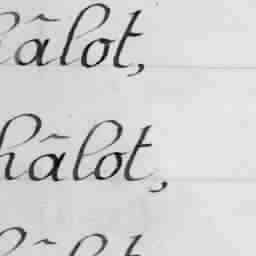 hâlot,
hâlot,